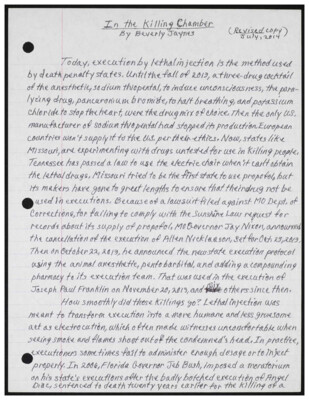 In the Killing Chamber
By Beverly Jaynes
(Revised copy)
July, 2014
Today, execution by lethal injection is the method used
by death penalty states. Until the fall of 2013, a three-drug cocktail
of the anesthetic, sodium thiopental, to induce unconsciousness, the para-
lyzing drug, pancuronium bromide, to halt breathing, and potassium
chloride to stop the heart, were the drug mix of choice. Then the only U.S.
manufacturer of sodium thiopental had stopped its production. European
countries won't supply it to the U.S. per their ethics. Now, states like
Missouri, are experimenting with drugs untested for use in killing people.
Tennessee has passed a law to use the electric chair when it can't obtain
the lethal drugs. Missouri tried to be the first state to use propofol, but
its makers have gone to great lengths to ensure that their drug not be
used in executions. Because of a lawsuit filed against MO Dept. of
Corrections, for failing to comply with the Sunshine Law request for
records about its supply of propofol, MO Governor Jay Nixon, announced
the cancellation of the execution of Allen Nicklasson, set for Oct. 23, 2013.
Then on October 22, 2013, he announced the new state execution protocol
using the animal anesthetic, pentobarbital, and adding a compounding
pharmacy to its execution team. That was used in the execution of
Joseph Paul Franklin on November 20, 2013, and others since then.
How smoothly did those killings go? Lethal injection was
meant to transform execution into a more humane and less gruesome
act as electrocution, which often made witnesses uncomfortable when
seeing smoke and flames shoot out of the condemned's head. In practice,
executioners sometimes fail to administer enough dosage or to inject
properly. In 2006, Florida Governor Jeb Bush, imposed a moratorium
on his state's executions after the badly botched execution of Angel
Diaz, sentenced to death twenty years earlier for the killing of a